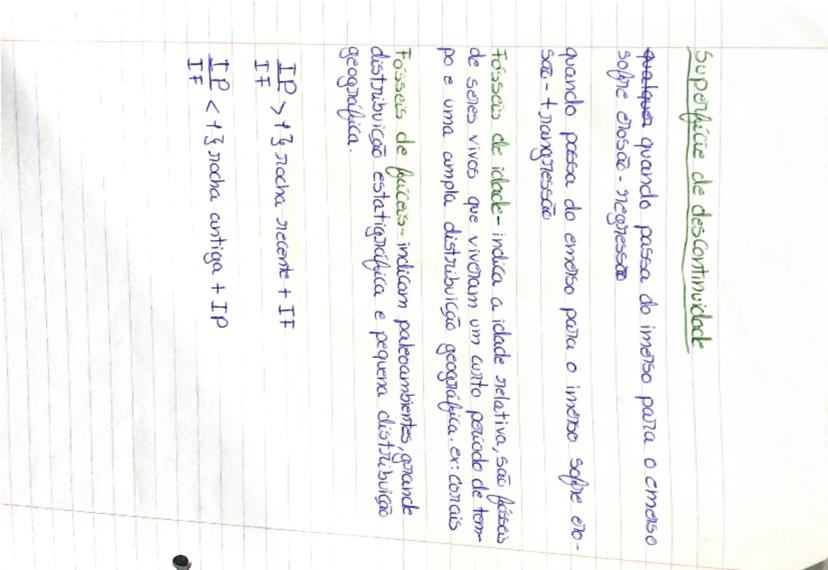 Superfície de descontinuidade
qualquer quando passa do imerso para o emerso
sofre erosão - regressão
quando passa do emerso para o imerso sofre ero-
são - trangressão
Fósseis de idade - indica a idade relativa, são fósseis
de seres vivos que viveram um curto periodo de tem-
po e uma ampla distribuição geográfica. ex: corais
Fósseis de fáceis - indicam paleoambientes, grande
distribuição estatigráfica e pequena distribuição
geográfica.
IP
IF > 1 } rocha recente + IF
IP
IF < 1 } rocha antiga + IP